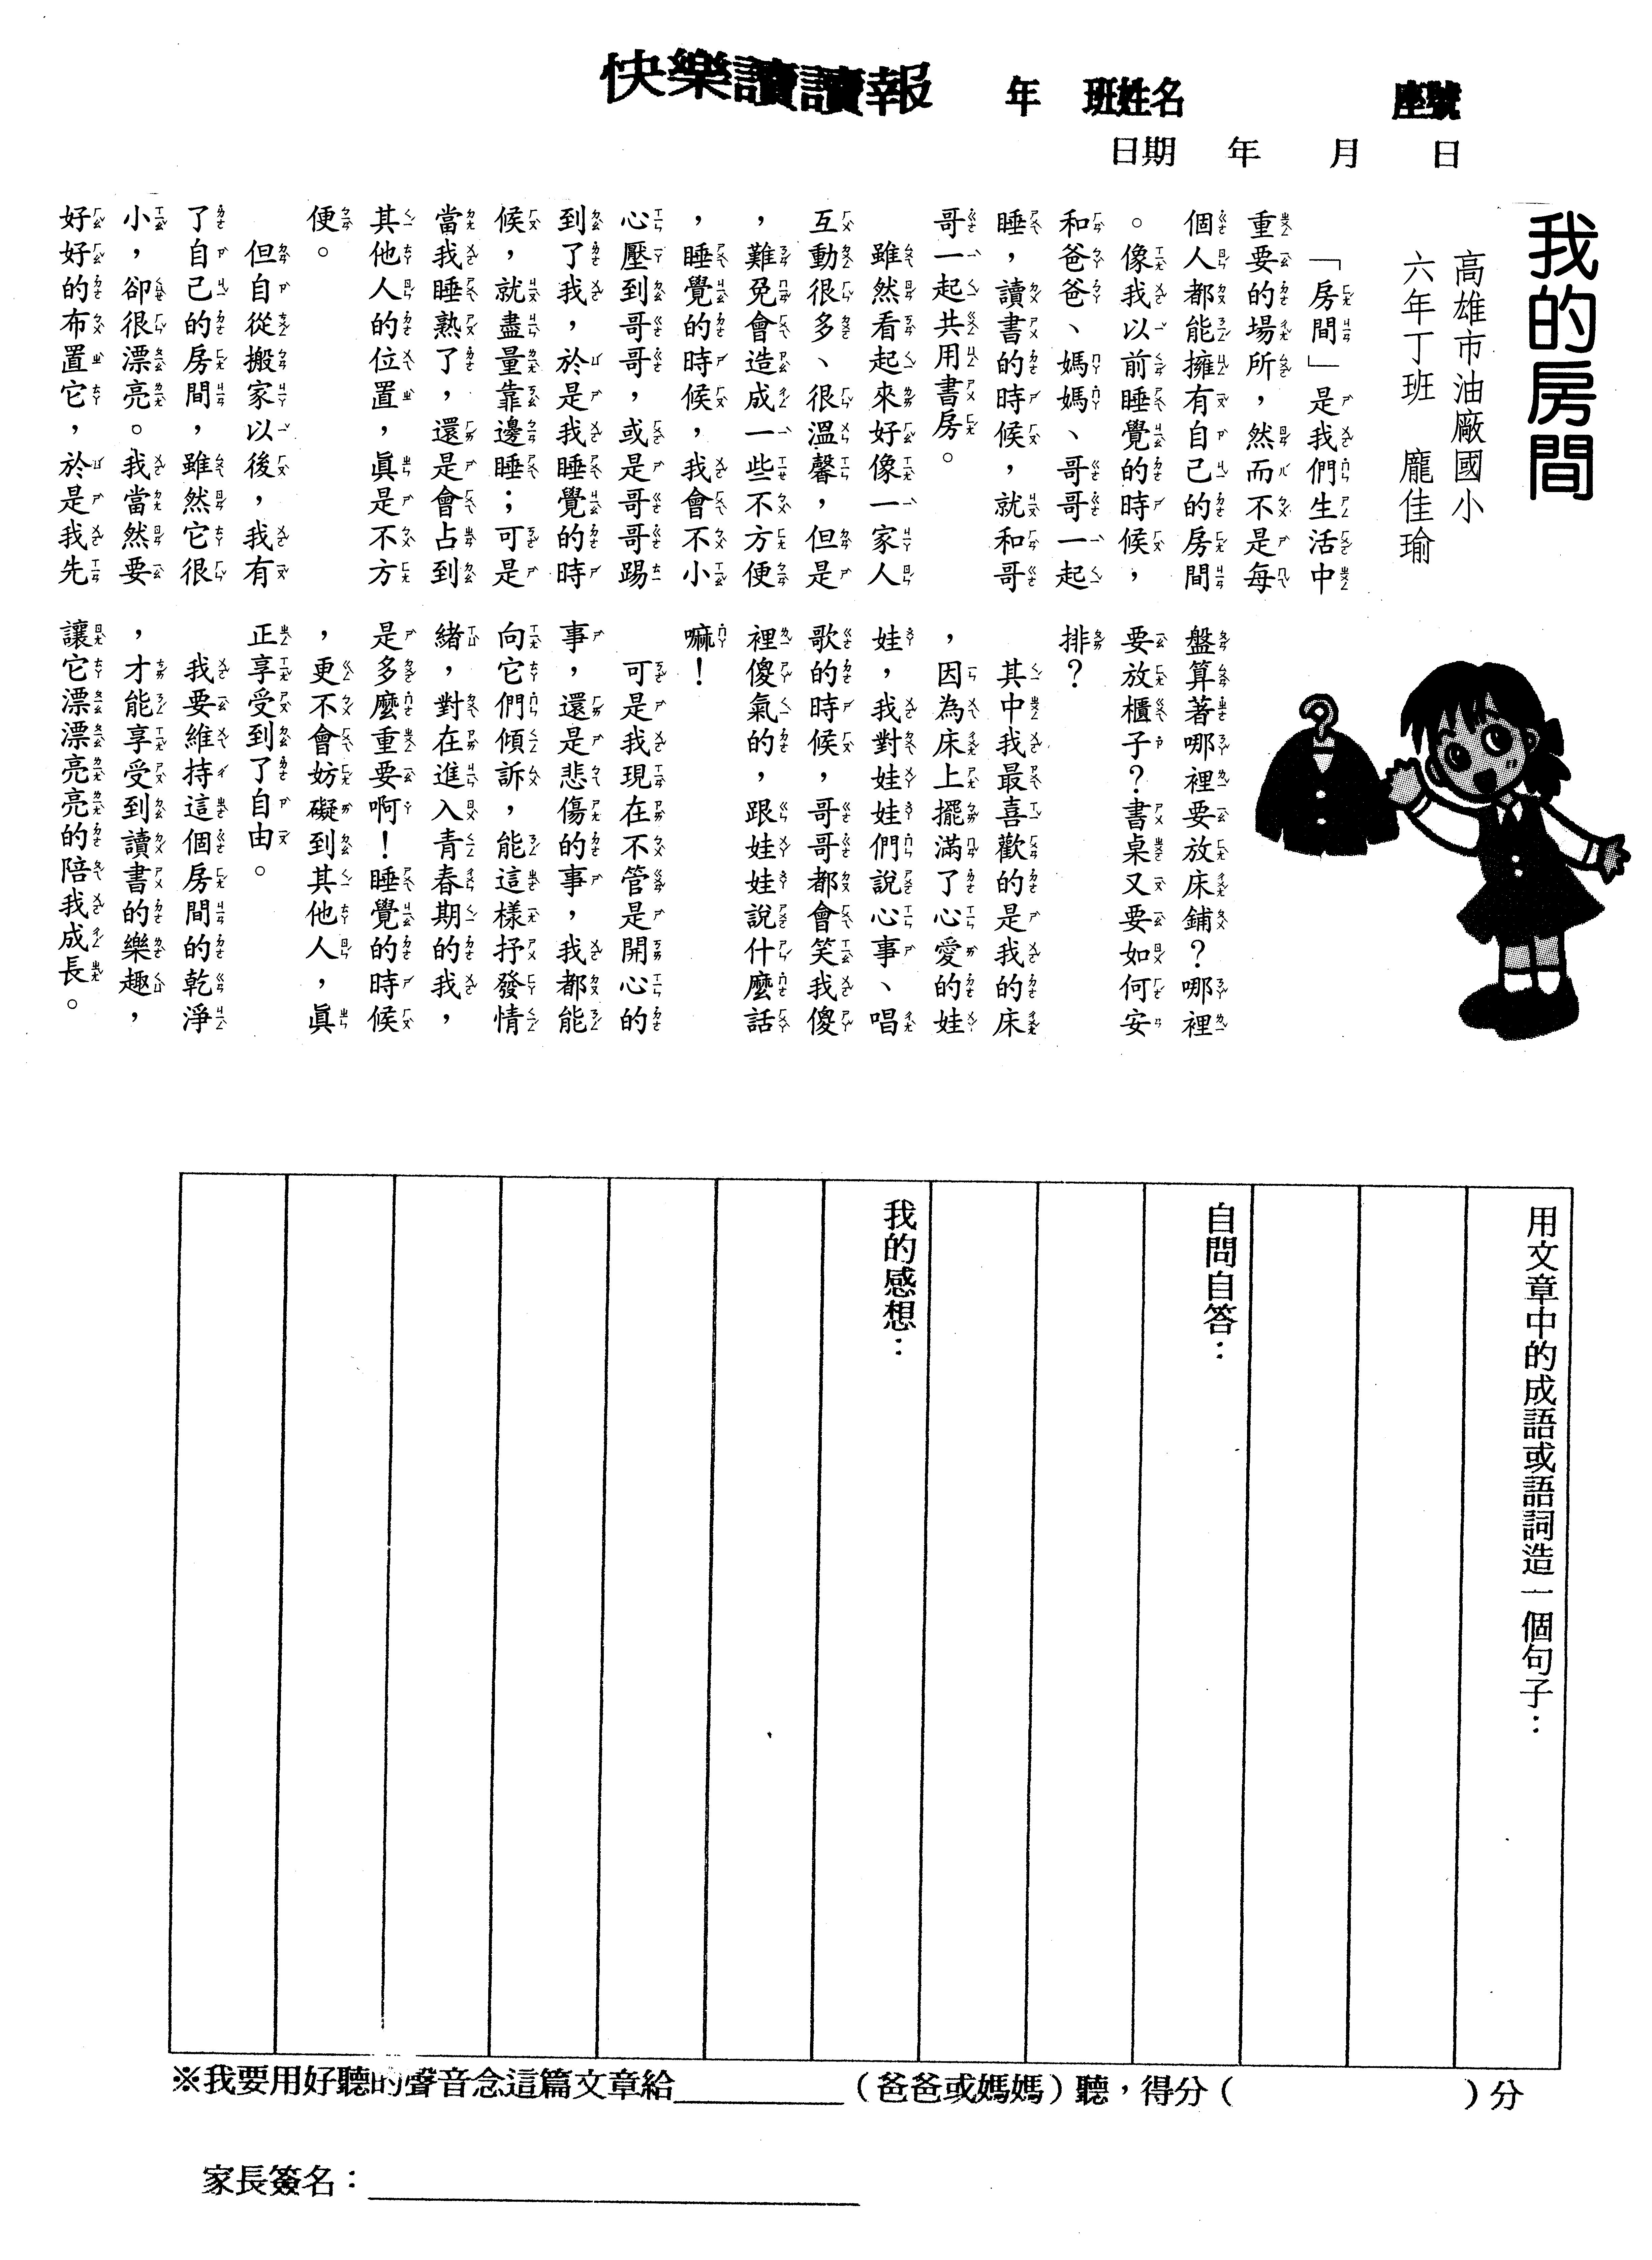 快樂讀讀報 年 班姓名 座號
日期 年 月 日
我的房間
高雄市油廠國小
六年丁班 龐佳瑜
「房間」是我們生活中
重要的場所，然而不是每
個人都能擁有自己的房間
。像我以前睡覺的時候，
和爸爸、媽媽、哥哥一起
睡，讀書的時候，就和哥
哥一起共用書房。
雖然看起來好像一家人
互動很多、很溫馨，但是
，難免會造成一些不方便
，睡覺的時候，我會不小
心壓到哥哥，或是哥哥踢
到了我，於是我睡覺的時
候，就盡量靠邊睡；可是
當我睡熟了，還是會占到
其他人的位置，真是不方
便。
但自從搬家以後，我有
了自己的房間，雖然它很
小，卻很漂亮。我當然要
好好的布置它，於是我先
盤算著哪裡要放床鋪？哪裡
要放櫃子？書桌又要如何安
排？
其中我最喜歡的是我的床
，因為床上擺滿了心愛的娃
娃，我對娃娃們說心事、唱
歌的時候，哥哥都會笑我傻
裡傻氣的，跟娃娃說什麼話
嘛！
可是我現在不管是開心的
事，還是悲傷的事，我都能
向它們傾訴，能這樣抒發情
緒，對在進入青春期的我，
是多麼重要啊！睡覺的時候
，更不會妨礙到其他人，真
正享受到了自由。
我要維持這個房間的乾淨
，才能享受到讀書的樂趣，
讓它漂漂亮亮的陪我成長。
用文章中的成語或語詞造一個句子：
自問自答：
我的感想：
※我要用好聽的聲音念這篇文章給________（爸爸或媽媽）聽，得分（ ）分
家長簽名：________